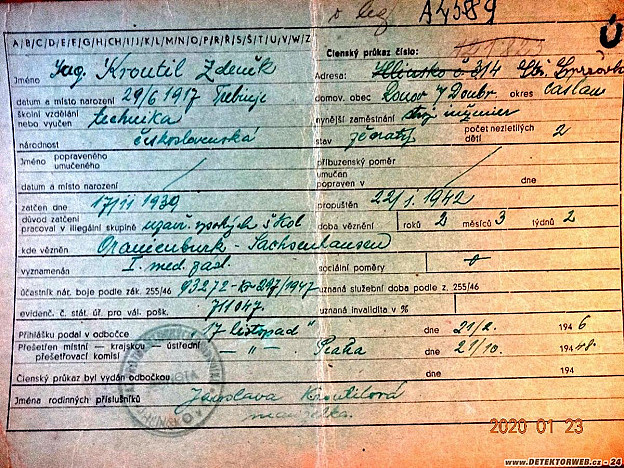 A4589
A/B/C/D/E/F/G/H/CH/I/J/K/L/M/N/O/P/R/Ř/S/Š/T/U/V/W/Z Členský průkaz číslo:
Jméno Ing Kroutil Zdeněk Adresa: Hlinsko č. 314
datum a místo narození 29/6 1917 Třebnuje domov. obec Ronov n/Doubr. okres Čáslav
školní vzdělání nebo vyučen technika nynější zaměstnání inženier
národnost československá stav ženatý počet nezletilých dětí 2
Jméno popraveného umučeného příbuzenský poměr
datum a místo narození umučen popraven v dne
zatčen dne 17/11 1939 propuštěn 22/1. 1942
důvod zatčení pracoval v illegální skupině uzavř. vysokých škol doba věznění roků 2 měsíců 3 týdnů 2
kde vězněn Oranienburk - Sachsenhausen
vyznamenán I. med. zásl. sociální poměry
účastník nár. boje podle zák. 255/46 93272-Kr 297/1947 uznaná služební doba podle z. 255/46
evidenč. č. stát. úř. pro vál. pošk. 711047. uznaná invalidita v %
Přihlášku podal v odbočce "17 listopad" dne 21/2. 194 6
Přešetřen místní — krajskou — ústřední přešetřovací komisí — " — Praha dne 21/10. 194 48.
Členský průkaz byl vydán odbočkou dne 194
Jména rodinných příslušníků Jaroslava Kroutilová
manželka.
2020 01 23
WWW.DETEKTORWEB.cz - 24